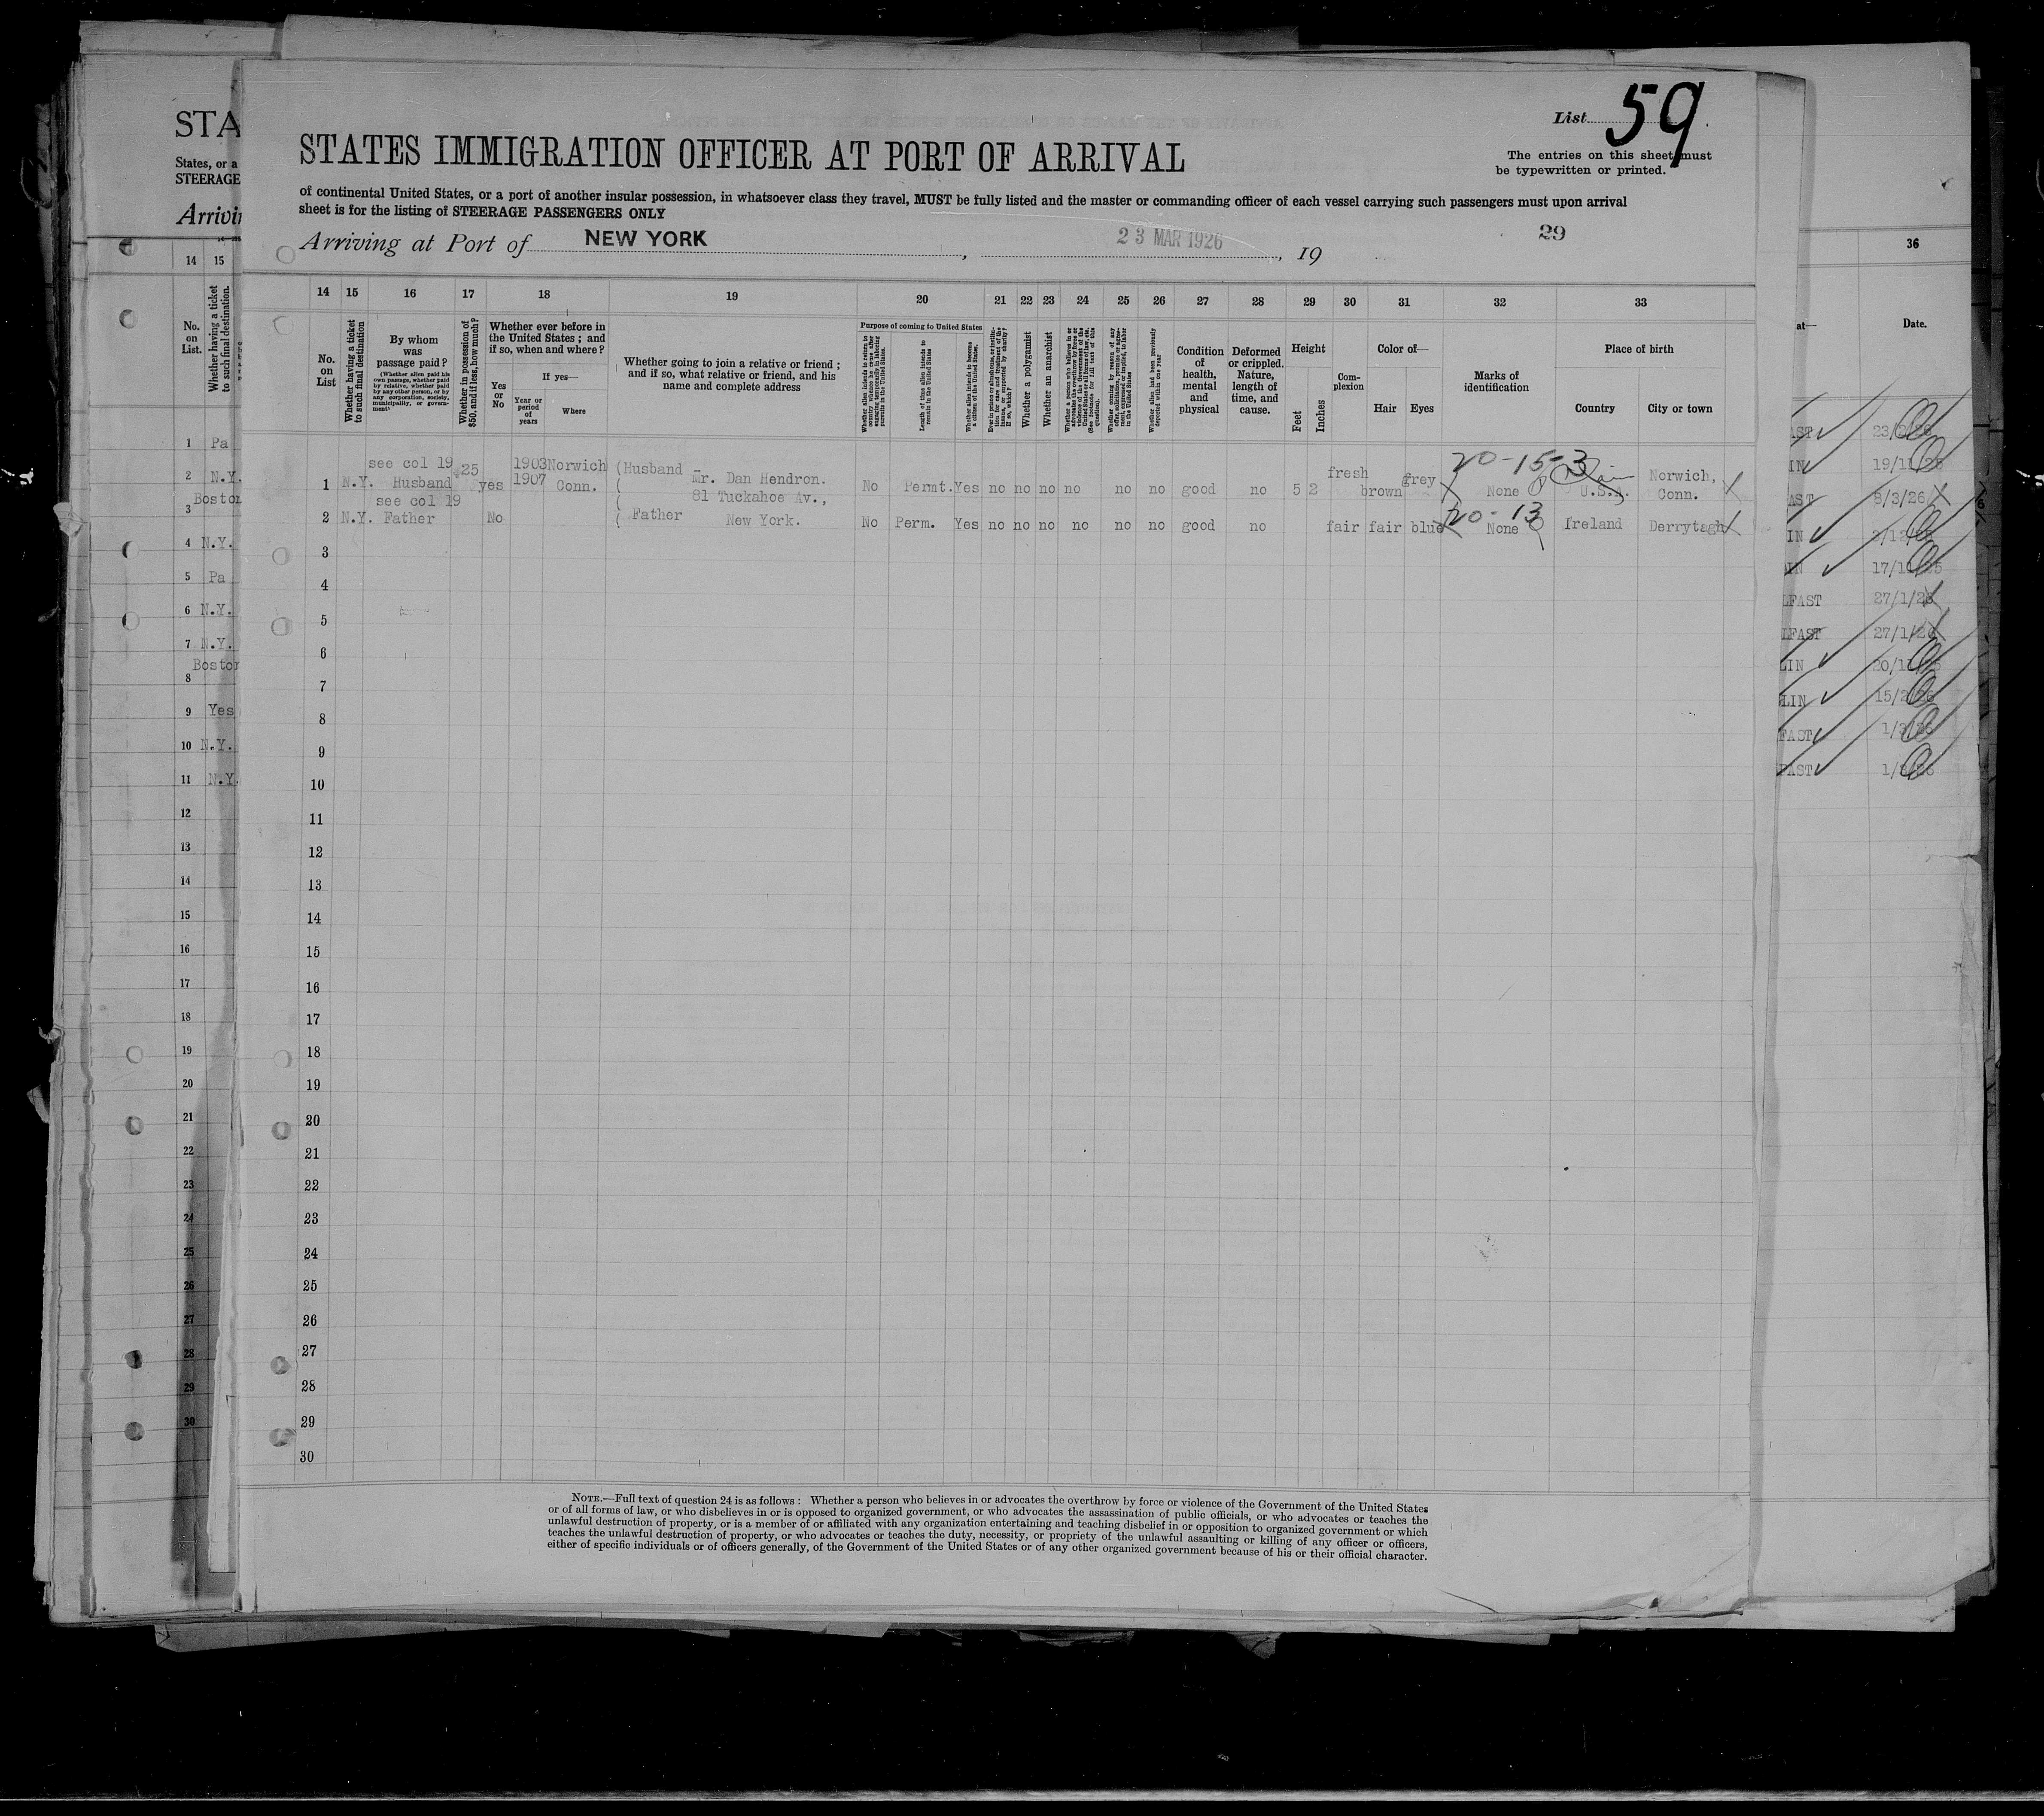 List 59
The entries on this sheet must
be typewritten or printed.
STATES IMMIGRATION OFFICER AT PORT OF ARRIVAL
of continental United States, or a port of another insular possession, in whatsoever class they travel, MUST be fully listed and the master or commanding officer of each vessel carrying such passengers must upon arrival
sheet is for the listing of STEERAGE PASSENGERS ONLY
Arriving at Port of NEW YORK, 23 MAR 1926, 19
29
14 15 16 17 18 19 20 21 22 23 24 25 26 27 28 29 30 31 32 33
No. on List
Whether having a ticket to such final destination
By whom was passage paid?
(Whether alien paid his own passage, whether paid by relative, whether paid by any other person, or by any corporation, society, municipality, or government)
Whether in possession of $50, and if less, how much?
Whether ever before in the United States; and if so, when and where?
Yes or No
If yes—
Year or period of years
Where
Whether going to join a relative or friend; and if so, what relative or friend, and his name and complete address
Purpose of coming to United States
Whether alien intends to return to country whence he came after engaging temporarily in laboring pursuits in the United States.
Length of time alien intends to remain in the United States
Whether alien intends to become a citizen of the United States.
Ever in prison or almshouse, or institution for care and treatment of the insane, or supported by charity? If so, which?
Whether a polygamist
Whether an anarchist
Whether coming by reason of any offer, solicitation, promise or agreement, expressed or implied, to labor in the United States
Whether alien had been previously deported within one year
Condition of health, mental and physical
Deformed or crippled. Nature, length of time, and cause.
Height
Feet
Inches
Complexion
Color of—
Hair
Eyes
Marks of identification
Place of birth
Country
City or town
see col 19 25 1903 Norwich (Husband - fresh grey 20-15-3 Norwich,
1 N.Y. Husband yes 1907 Conn. ( Mr. Dan Hendron. No Permt. Yes no no no no no no good no 5 2 brown None U.S.A. Conn.
see col 19 ( 81 Tuckahoe Av.,
2 N.Y. Father No ( Father New York. No Perm. Yes no no no no no no good no fair fair blue 20-13 None Ireland Derrytagh
3
4
5
6
7
8
9
10
11
12
13
14
15
16
17
18
19
20
21
22
23
24
25
26
27
28
29
30
NOTE.—Full text of question 24 is as follows: Whether a person who believes in or advocates the overthrow by force or violence of the Government of the United States
or of all forms of law, or who disbelieves in or is opposed to organized government, or who advocates the assassination of public officials, or who advocates or teaches the
unlawful destruction of property, or is a member of or affiliated with any organization entertaining and teaching disbelief in or opposition to organized government or which
teaches the unlawful destruction of property, or who advocates or teaches the duty, necessity, or propriety of the unlawful assaulting or killing of any officer or officers,
either of specific individuals or of officers generally, of the Government of the United States or of any other organized government because of his or their official character.
STA
States, or a
STEERAGE
Arrivi
14 15
No. on List.
Whether having a ticket to such final destination.
1 Pa
2 N.Y.
Boston
3
4 N.Y.
5 Pa
6 N.Y.
7 N.Y.
Boston
8
9 Yes
10 N.Y.
11 N.Y.
12
13
14
15
16
17
18
19
20
21
22
23
24
25
26
27
28
29
30
36
at—
Date.
AST
IN
AST 8/3/26
IN
IN
LFAST 27/1/26
LFAST 27/1/26
LIN
LIN
FAST
FAST